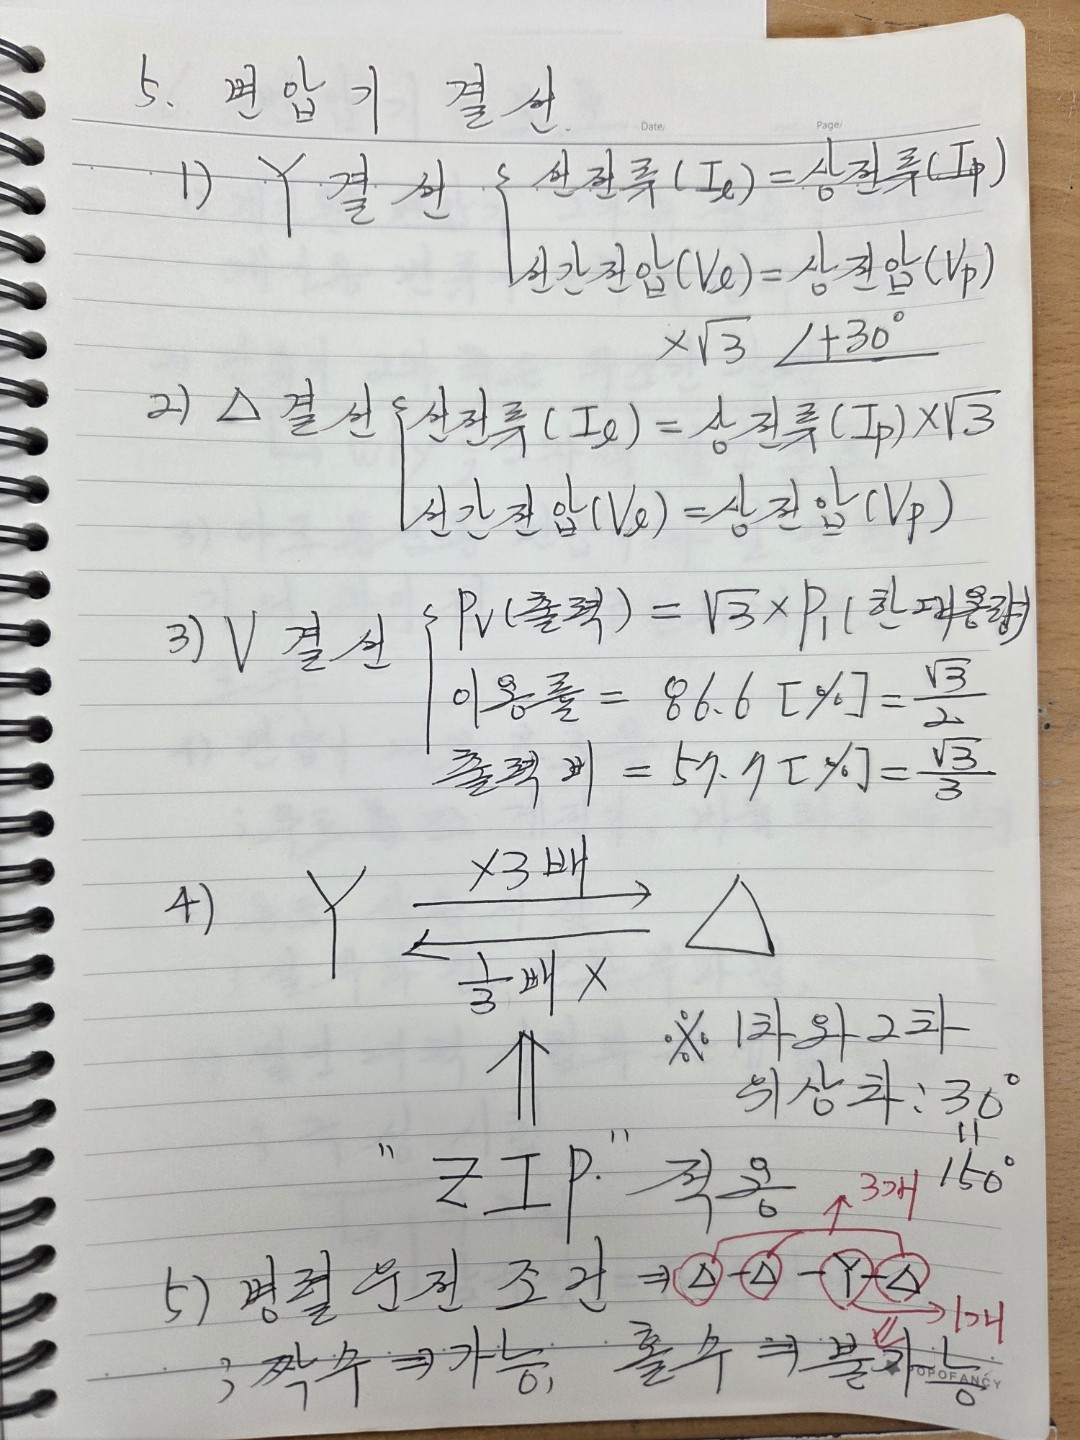 5. 변압기 결선.
Date/ Page/
1) Y결선 { 선전류(Iℓ) = 상전류(Ip)
선간전압(Vℓ) = 상전압(Vp)
×√3 ∠+30°
2) △결선 { 선전류(Iℓ) = 상전류(Ip)×√3
선간전압(Vℓ) = 상전압(Vp)
3) V결선 { PV(출력) = √3×P1(한대용량)
이용률 = 86.6 [%] = √3/2
출력비 = 57.7 [%] = √3/3
×3배
4) Y ⇄ △
1/3배 ×
⇑
※ 1차와 2차
위상차 : 30°
=
150°
"ZIP." 적용
3개
5) 병렬운전 조건 ⇒ △-△-Y-△
1개
; 짝수 ⇒ 가능, 홀수 ⇒ 불가능
POPOFANCY